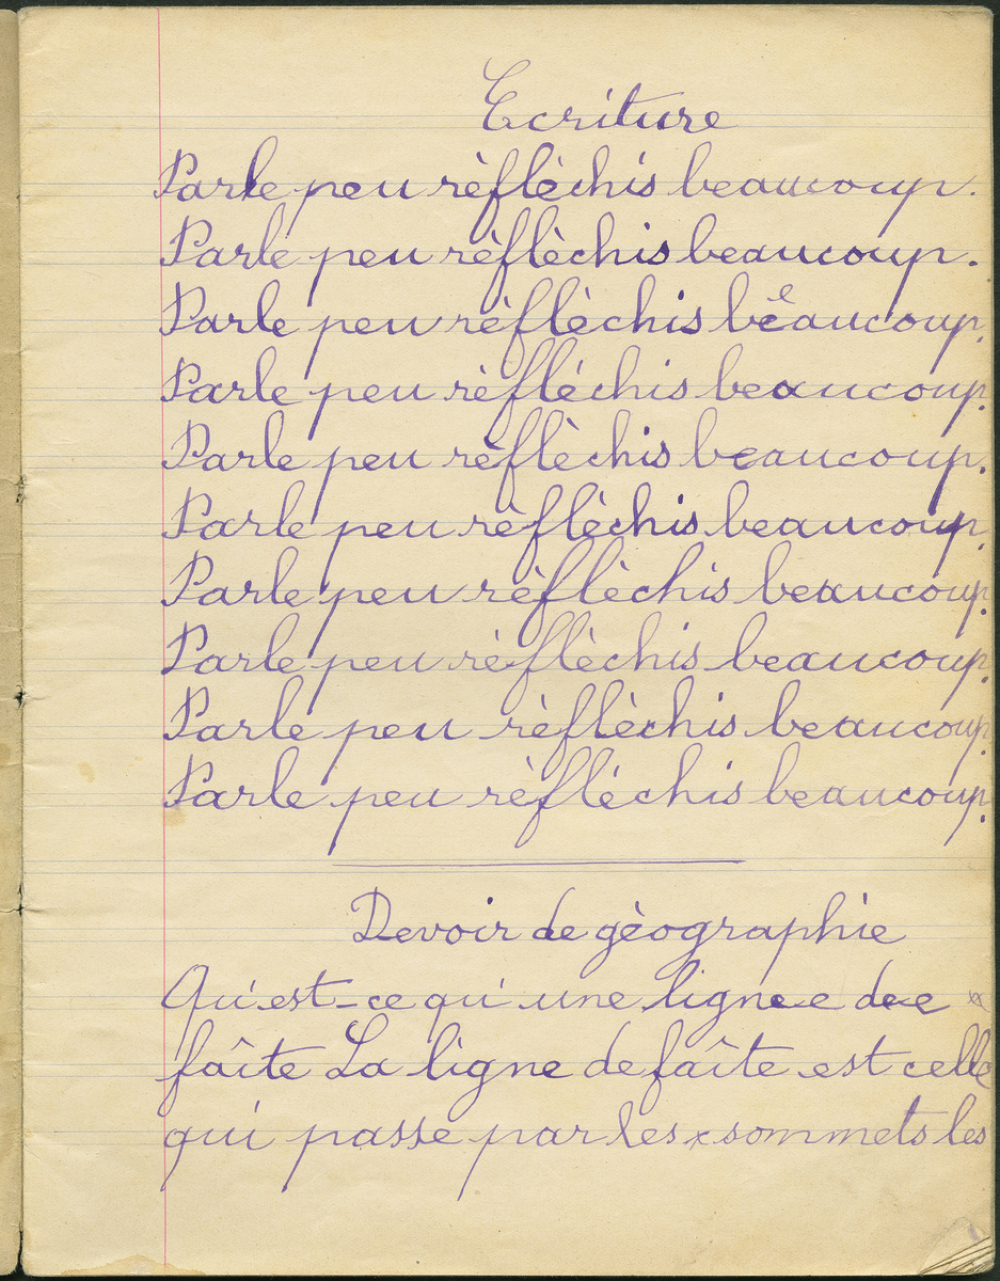 Ecriture
Parle peu rèflèchis beaucoup.
Parle peu rèflèchis beaucoup.
Parle peu rèflèchis beaucoup.
Parle peu rèfléchis beaucoup.
Parle peu rèflèchis beaucoup.
Parle peu rèflèchis beaucoup.
Parle peu rèflèchis beaucoup.
Parle peu rèflèchis beaucoup.
Parle peu rèflèchis beaucoup.
Parle peu rèfléchis beaucoup.
Devoir de gèographie
Qu'est-ce qu'une ligne de
faîte La ligne de faîte est celle
qui passe par les x sommets les